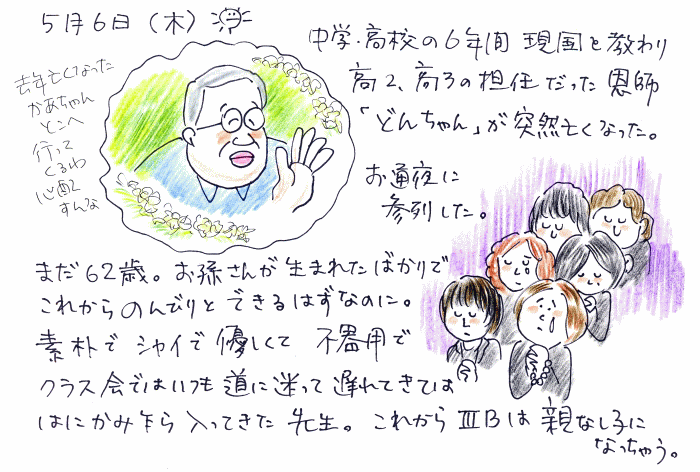 5月6日(木)
去年亡くなった
かあちゃん
とこへ
行って
くるわ
心配
すんな
中学・高校の6年間 現国を教わり
高2、高3の担任だった 恩師
「どんちゃん」が突然亡くなった。
お通夜に
参列した。
まだ62歳。お孫さんが生まれたばかりで
これからのんびりとできるはずなのに。
素朴で シャイで 優しくて 不器用で
クラス会ではいつも 道に迷って 遅れてきては
はにかみながら 入ってきた 先生。これから ⅢBは 親なし子に
なっちゃう。